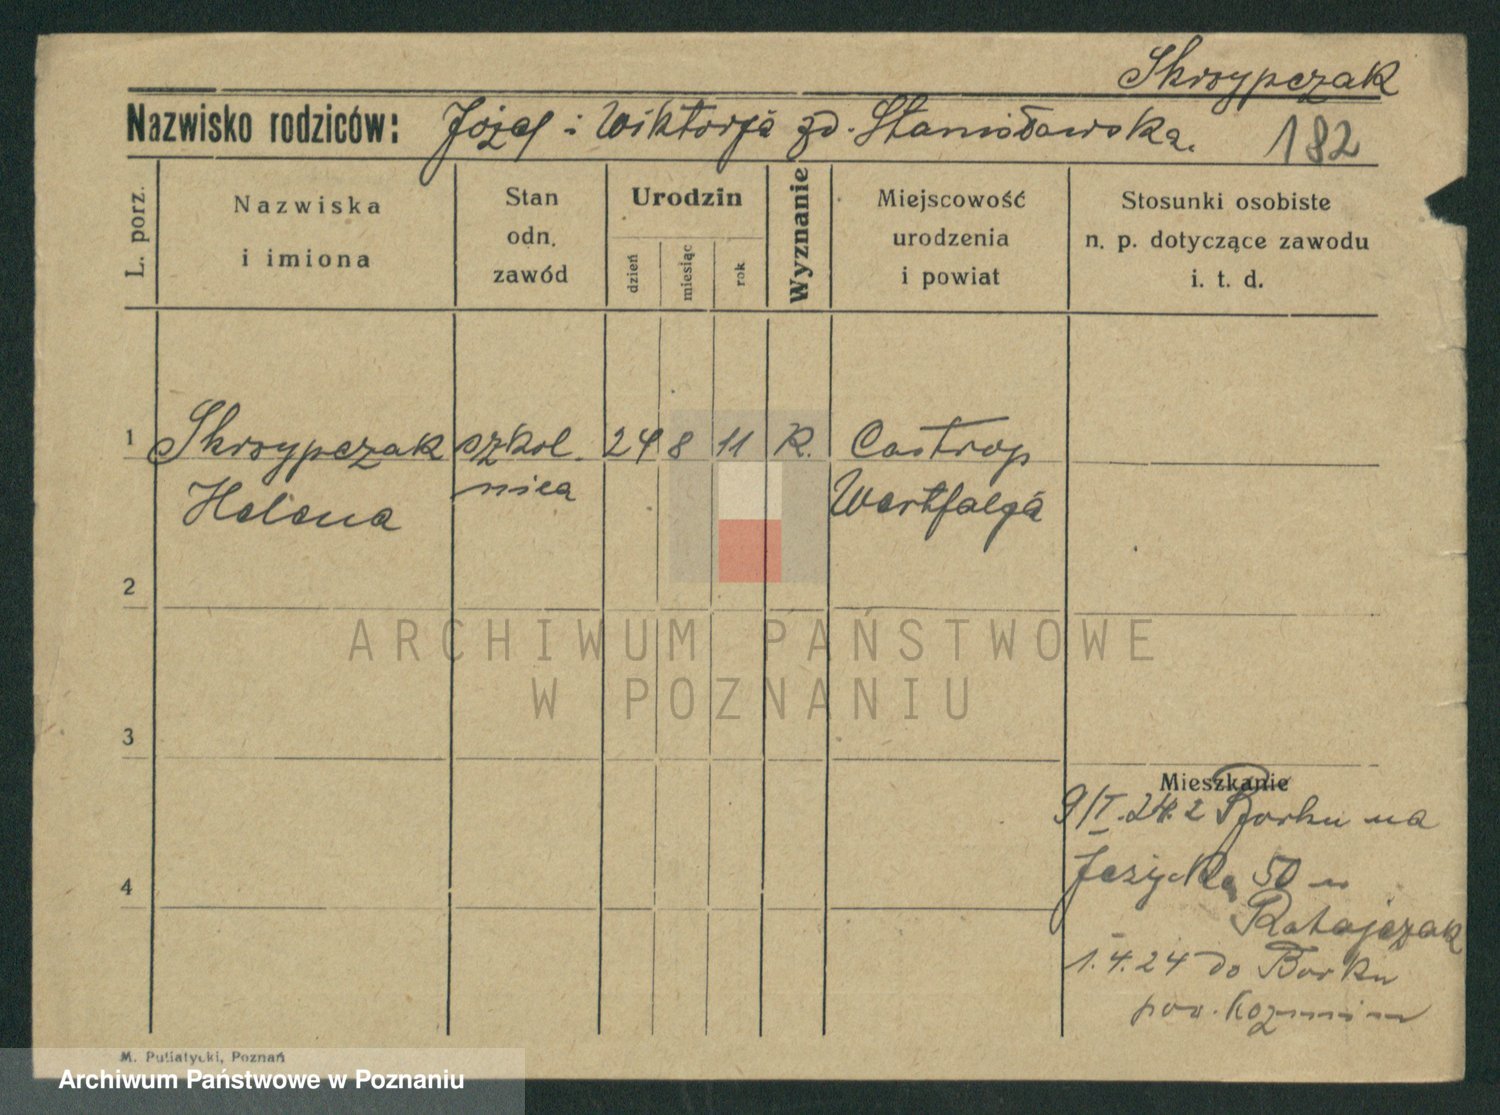 Skrzypczak
Nazwisko rodziców: Józef i Wiktorja zd. Stanisławska. 182
L. porz.
Nazwiska
i imiona
Stan
odn.
zawód
Urodzin
dzień
miesiąc
rok
Wyznanie
Miejscowość
urodzenia
i powiat
Stosunki osobiste
n. p. dotyczące zawodu
i. t. d.
1 Skrzypczak szkol. 24 8 11 K. Castrop
Helena nica Westfalja
2
ARCHIWUM PAŃSTWOWE
W POZNANIU
3
Mieszkanie
9/I.24. z Borku na
Jeżycka 50 u
4
Ratajczak
1.4.24 do Borku
pow. Kozmin
M. Putiatycki, Poznań
Archiwum Państwowe w Poznaniu